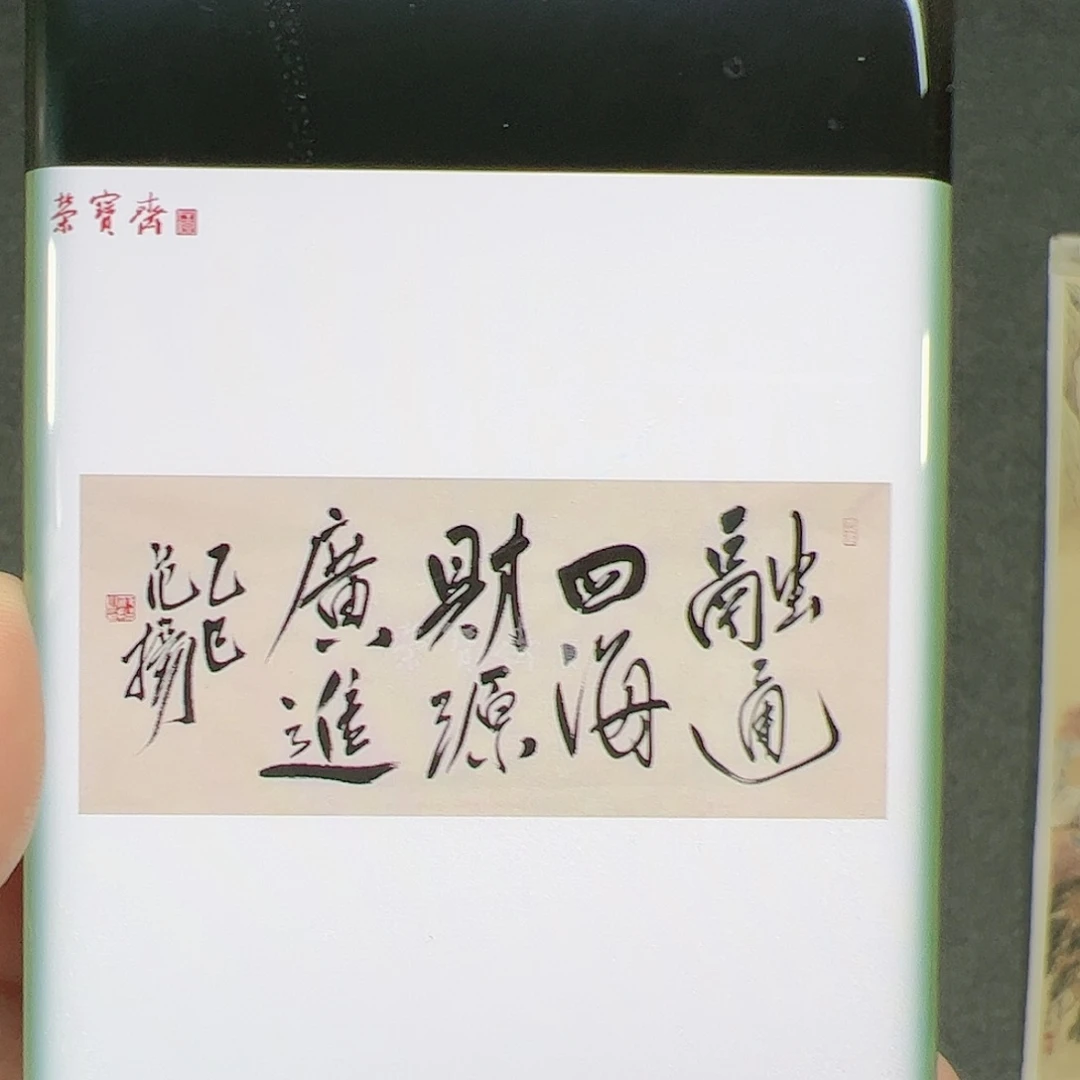 榮寶齋
融通
四海
財源
廣進
乙巳
范揚